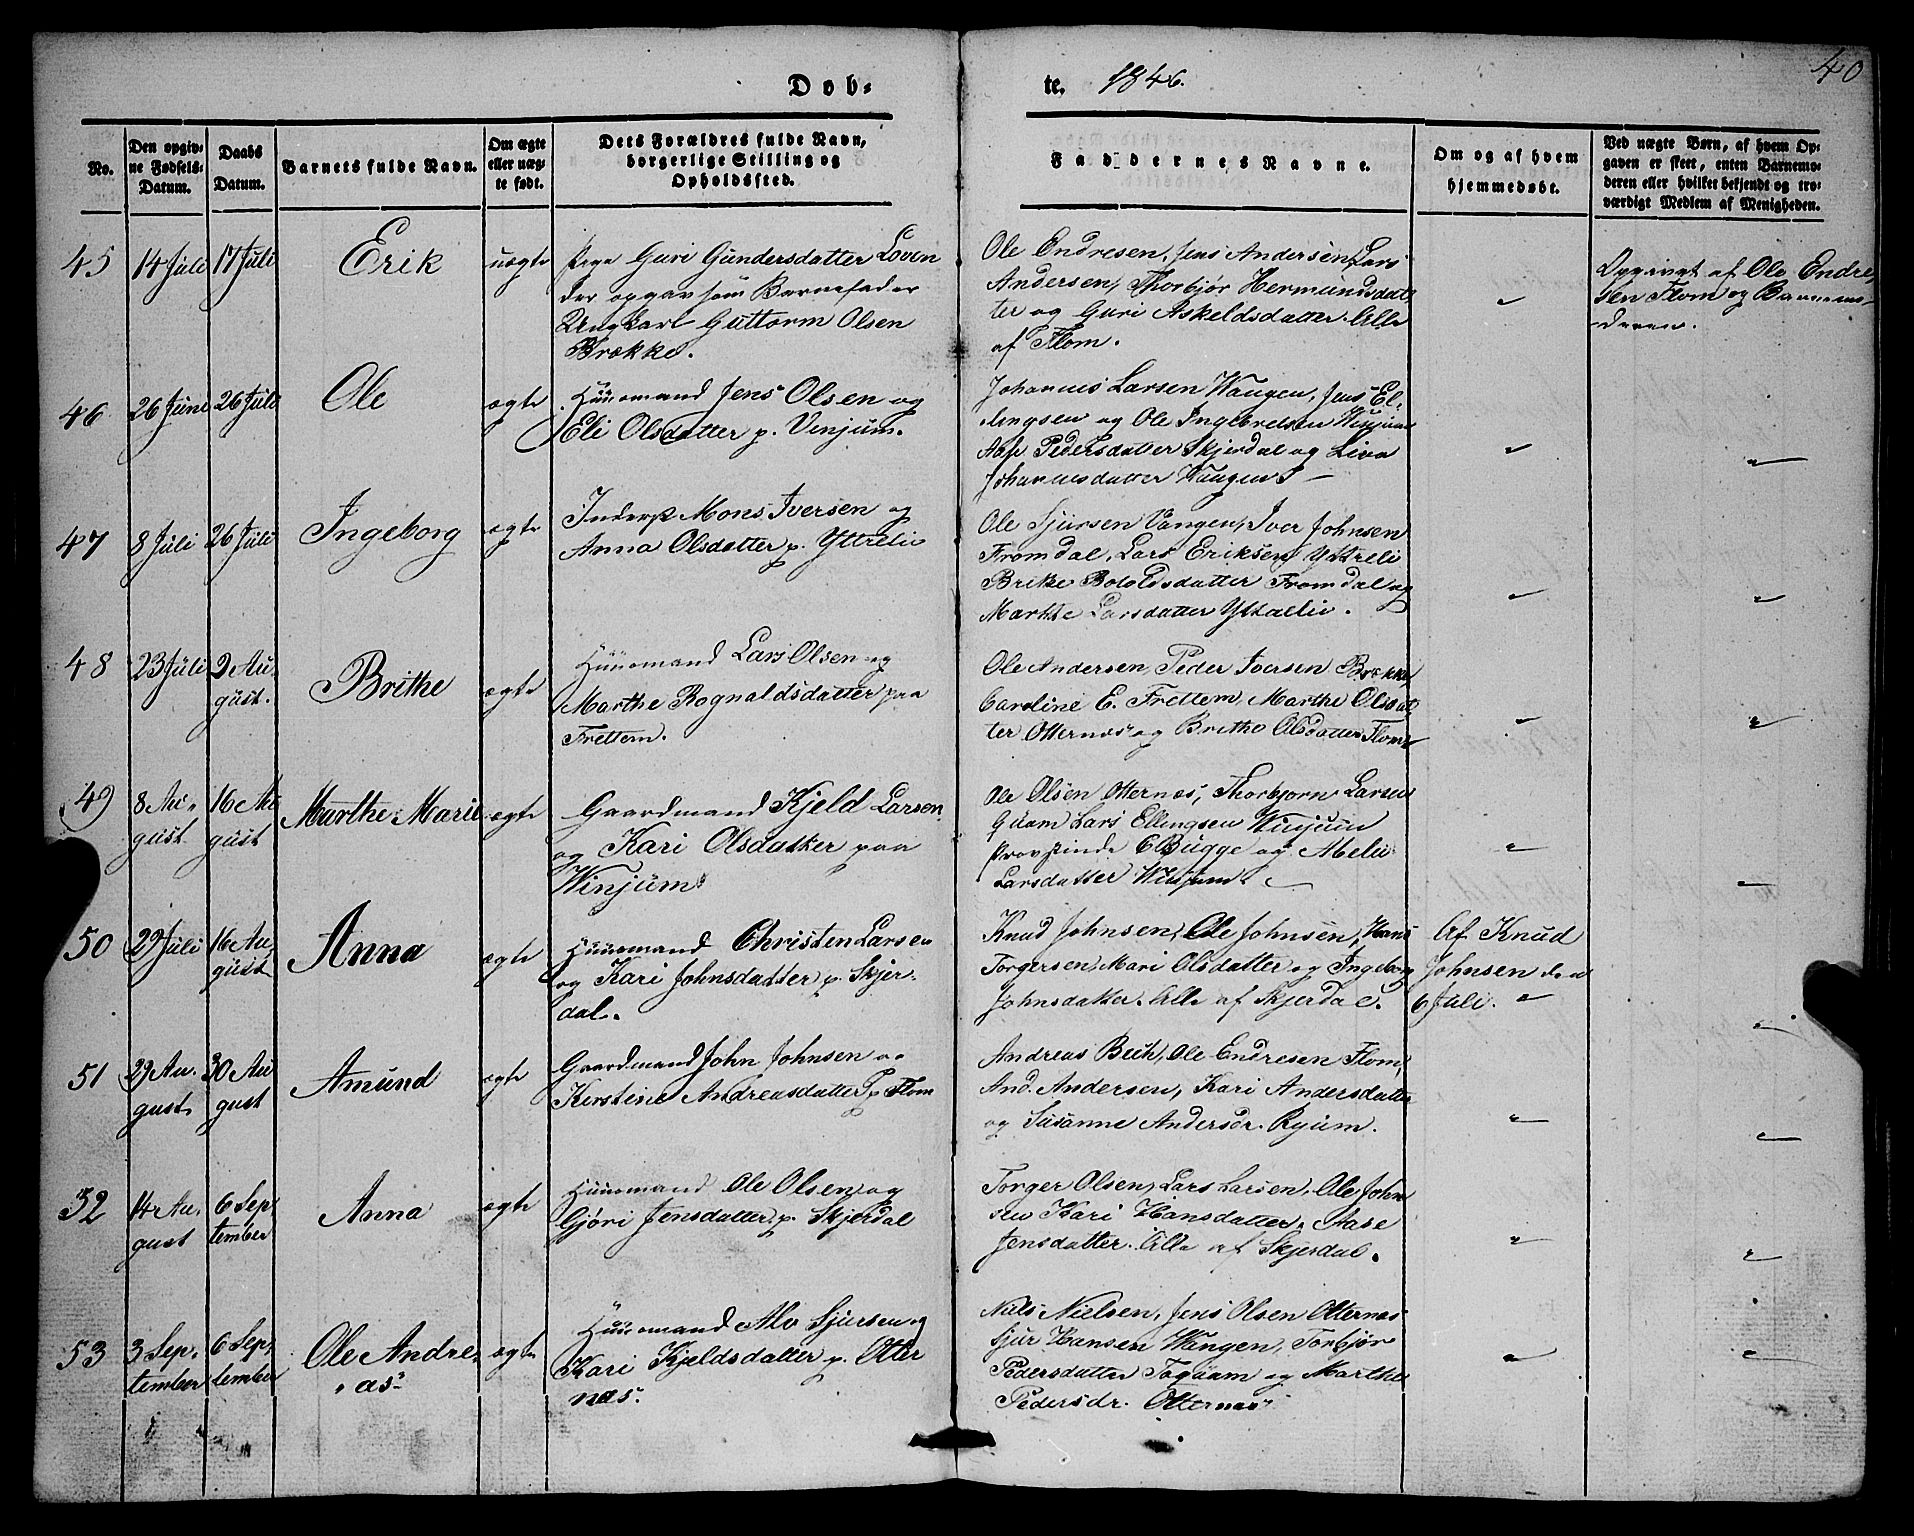 40
Døb-
te. 1846.
No.
Den opgiv-
ne Fødsels-
Datum.
Daabs
Datum.
Barnets fulde Navn.
Om ægte
eller uæg-
te født.
Dets Forældres fulde Navn,
borgerlige Stilling og
Opholdssted.
Faddernes Navne.
Om og af hvem
hjemmedøbt.
Ved uægte Børn, af hvem Op-
gaven er skeet, enten Barnemo-
deren eller hvilket bekjendt og tro-
værdigt Medlem af Menigheden.
45
14 Juli
17 Juli
Erik
uægte
Pige Guri Gundersdatter Loven
der opgav som Barnefader
Ungkarl Guttorm Olsen
Brække.
Ole Endresen, Jens Andersen, Lars
Andersen, Thorbjør Hermundsdat
ter og Guri Askeldsdatter. Alle
af Flom.
Opgivet af Ole Endre-
sen Flom og Barnemo-
deren.
46
26 Juni
26 Juli
Ole
ægte
Huusmand Jens Olsen og
Eli Olsdatter p. Vinjum.
Johannes Larsen Wangen, Jens El-
lingsen og Ole Ingebretsen Winjum
Aase Pedersdatter Skjerdal og Liva
Johannesdatter Wangen
47
8 Juli
26 Juli
Ingeborg
ægte
Inders. Mons Iversen og
Anna Olsdatter p. Yttrelie
Ole Sjursen Vangen, Iver Johnsen
Fromdal, Lars Eriksen Yttreli
Brite Botolfsdatter Fromdal og
Marthe Larsdatter Yttrelie.
48
23 Juli
2 Au-
gust.
Brithe
ægte
Huusmand Lars Olsen og
Marthe Rognaldsdatter paa
Frettem.
Ole Andersen, Peder Iversen Brække,
Caroline E. Frettem, Marthe Olsdat
ter Otternæs og Brithe Olsdatter Flom
49
8 Au-
gust
16 Au
gust
Marthe Marie
ægte
Gaardmand Kjeld Larsen
og Kari Olsdatter paa
Winjum
Ole Olsen Otternæs, Thorbjørn Larsen
Qvam Lars Ellingsen Winjum
Provstinde C Bugge og Meli
Larsdatter Winjum.
50
29 Juli
16 Au
gust
Anna
ægte
Huusmand Christen Larsen
og Kari Johnsdatter p. Skjer-
dal.
Knud Johnsen, Ole Johnsen, Hans
Torgersen, Mari Olsdatter og Ingeborg
Johnsdatter. Alle af Skjerdal.
Af Knud
Johnsen den
6 Juli.
51
29 Au-
gust.
30 Au
gust
Amund
ægte
Gaardmand John Johnsen og
Kerstine Andreasdatter p. Flom
Andreas Beck, Ole Endresen Flom,
And. Andersen, Kari Andersdatter
og Susanne Andersdr. Ryum.
52
14 Au-
gust
6 Sep
tember
Anna
ægte
Huusmand Ole Olsen og
Gjøri Jensdatter p. Skjerdal
Torger Olsen, Lars Larsen, Ole John
sen Kari Hansdatter, Aase
Jensdatter. Alle af Skjerdal.
53
3 Sep-
tember
6 Sep-
tember
Ole Andre-
as
ægte
Huusmand Alv Sjursen og
Kari Kjeldsdatter p. Otter
næs.
Niels Nielsen, Jens Olsen Otternæs
Sjur Hansen Wangen, Torbjør
Pedersdatter og Marthe
Pedersdr. Otternæs